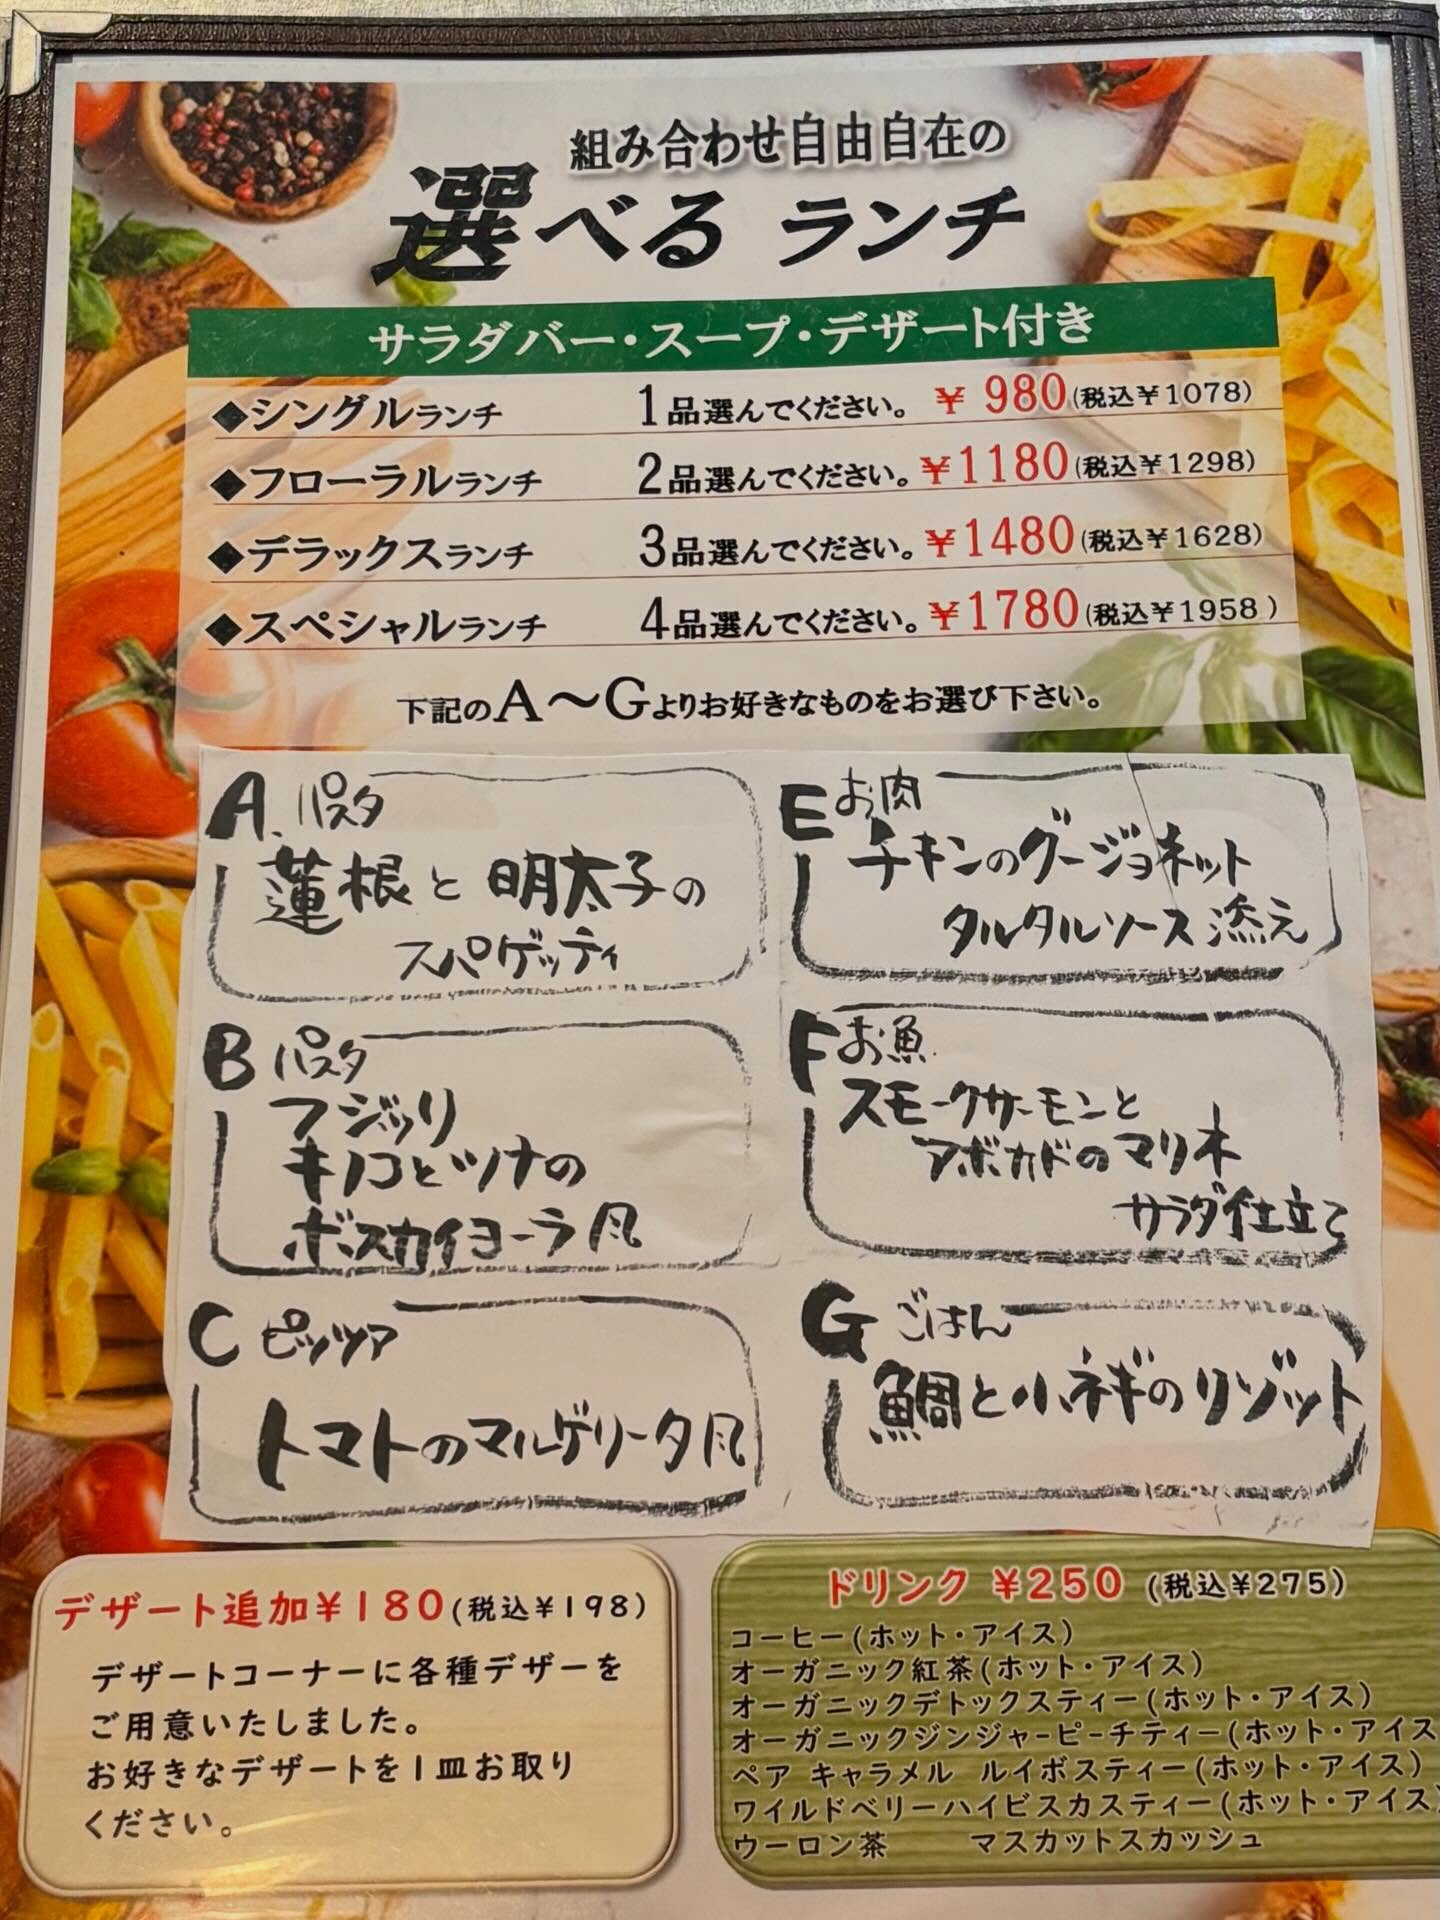 組み合わせ自由自在の
選べる ランチ
サラダバー・スープ・デザート付き
◆シングルランチ 1品選んでください。 ¥ 980(税込¥1078)
◆フローラルランチ 2品選んでください。 ¥1180(税込¥1298)
◆デラックスランチ 3品選んでください。 ¥1480(税込¥1628)
◆スペシャルランチ 4品選んでください。 ¥1780(税込¥1958 )
下記のA〜Gよりお好きなものをお選び下さい。
A. パスタ
蓮根と明太子の
スパゲッティ
B パスタ
フジッリ
キノコとツナの
ボスカイヨーラ風
C ピッツァ
トマトのマルゲリータ風
E お肉
チキンのグージョネット
タルタルソース添え
F お魚
スモークサーモンと
アボカドのマリネ
サラダ仕立て
G ごはん
鯛と小ネギのリゾット
デザート追加¥180(税込¥198)
デザートコーナーに各種デザーを
ご用意いたしました。
お好きなデザートを1皿お取り
ください。
ドリンク ¥250 (税込¥275)
コーヒー(ホット・アイス)
オーガニック紅茶(ホット・アイス)
オーガニックデトックスティー(ホット・アイス)
オーガニックジンジャーピーチティー(ホット・アイス
ペア キャラメル ルイボスティー(ホット・アイス)
ワイルドベリーハイビスカスティー(ホット・アイス)
ウーロン茶 マスカットスカッシュ